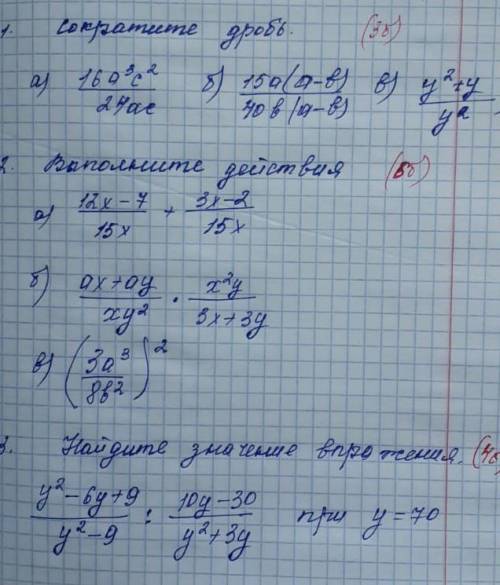 1. Сократите дробь. (3б)
а) 16a³c² / 24ac б) 15a(a-b) / 40b(a-b) в) y²+y / y²
2. Выполните действия (6б)
а) 12x-7 / 15x + 3x-2 / 15x
б) ax+ay / xy² · x²y / 3x+3y
в) (3a³ / 8b²)²
3. Найдите значение выражения. (4б)
y²-6y+9 / y²-9 : 10y-30 / y²+3y при y=70